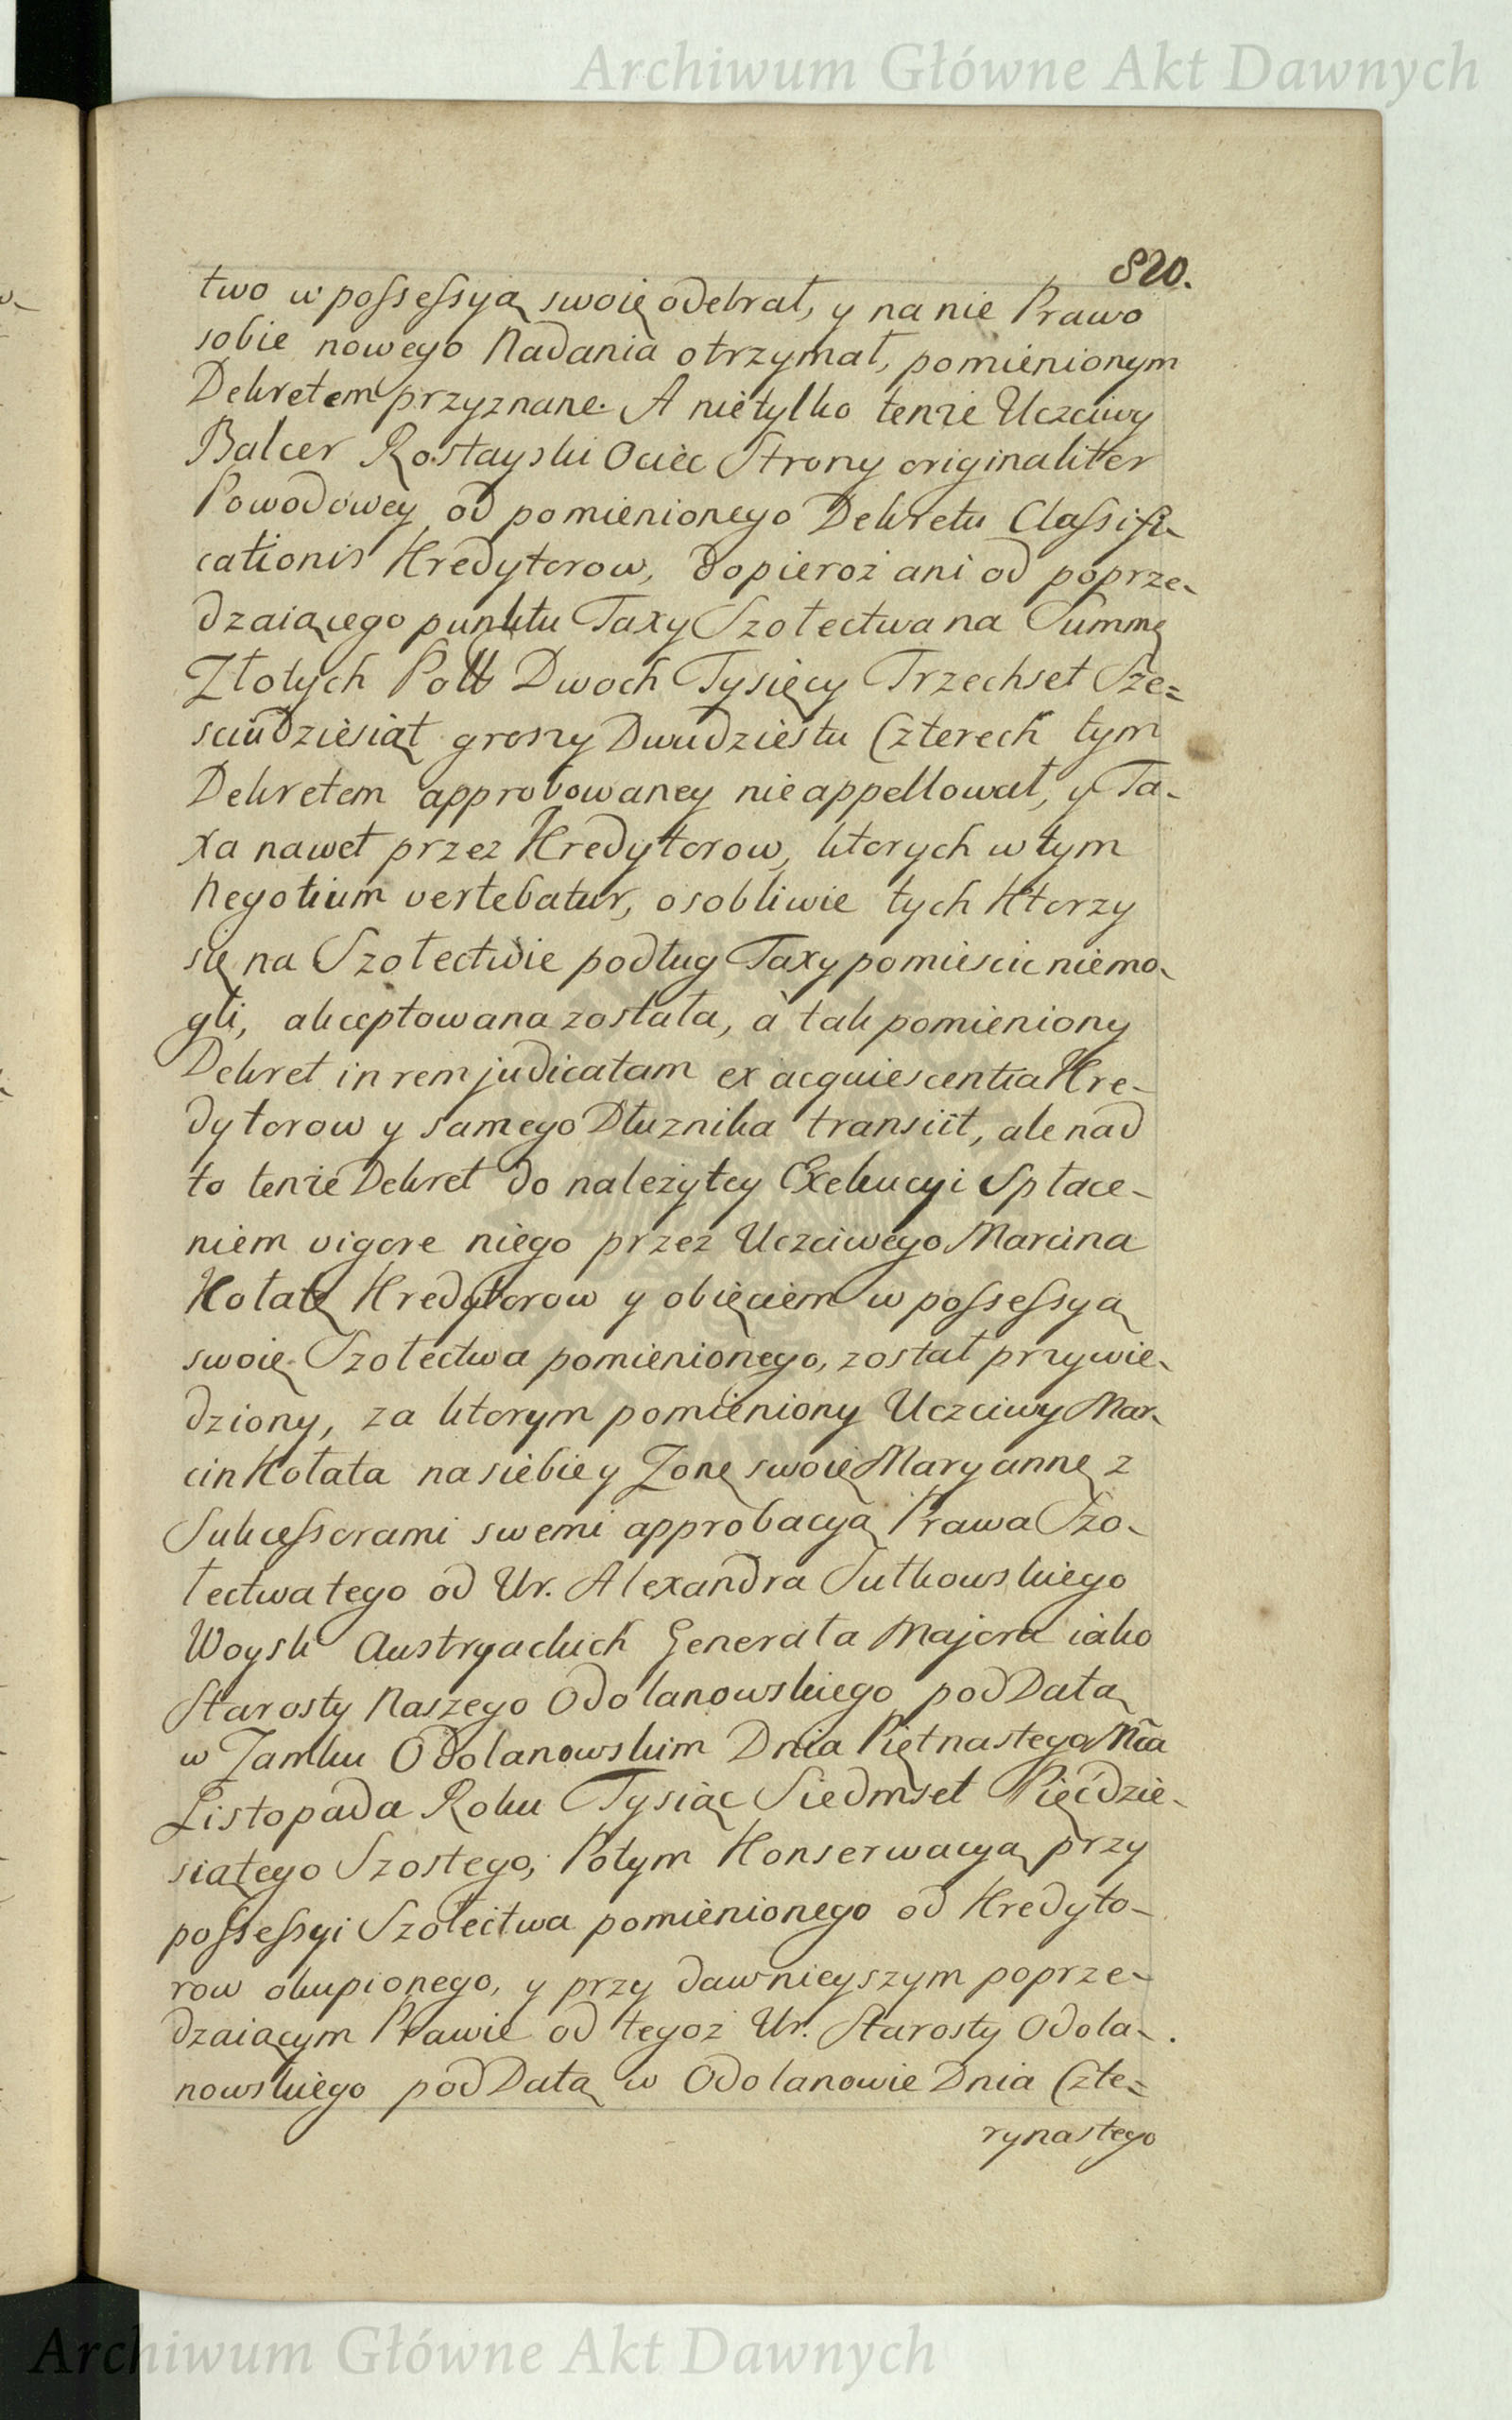 Archiwum Główne Akt Dawnych
820.
two w possessyą swoię odebrał, y na nie Prawo
sobie nowego Nadania otrzymał, pomienionym
Dekretem przyznane. A nietylko tenże Uczciwy
Balcer Rostayski Ociec Strony originaliter
Powodowey od pomienionego Dekretu Classifi-
cationis Kredytorow, dopieroż ani od poprze-
dzaiącego punktu Taxy Szołectwa na Summę
Złotych Poll Dwoch Tysięcy Trzechset Sze=
sciudziesiąt groszy Dwudziestu Czterech tym
Dekretem approbowaney nie appellował, y Ta-
xa nawet przez Kredytorow, ktorych w tym
Negotium vertebatur, osobliwie tych ktorzy
się na Szołectwie podług Taxy pomiescic niemo-
gli, akceptowana została, à tak pomieniony
Dekret in rem judicatam ex acquiescentia Kre-
dytorow y samego Dłuznika transiit, ale nad
to tenże Dekret do należytey Exekucyi spłace-
niem vigore niego przez Uczciwego Marcina
Kołatę Kredytorow y obięciem w possessyą
swoię Szołectwa pomienionego, został przywie-
dziony, za ktorym pomieniony Uczciwy Mar-
cin Kołata na siebie y Zonę swoię Maryannę z
Sukcessorami swemi approbacyą Prawa Szo-
łectwa tego od Ur. Alexandra Sułkowskiego
Woysk Austryackich Generała Majora iako
Starosty Naszego Odolanowskiego pod Datą
w Zamku Odolanowskim Dnia Piętnastego Mca
Listopada Roku Tysiąc Siedmset Pięćdzie-
siątego Szostego, Potym Konserwacyą przy
possessyi Szołectwa pomienionego od Kredyto-
row okupionego, y przy dawnieyszym poprze-
dzaiącym Prawie od tegoż Ur. Starosty Odola-
nowskiego pod Datą w Odolanowie Dnia Czte=
rynastego
Archiwum Główne Akt Dawnych